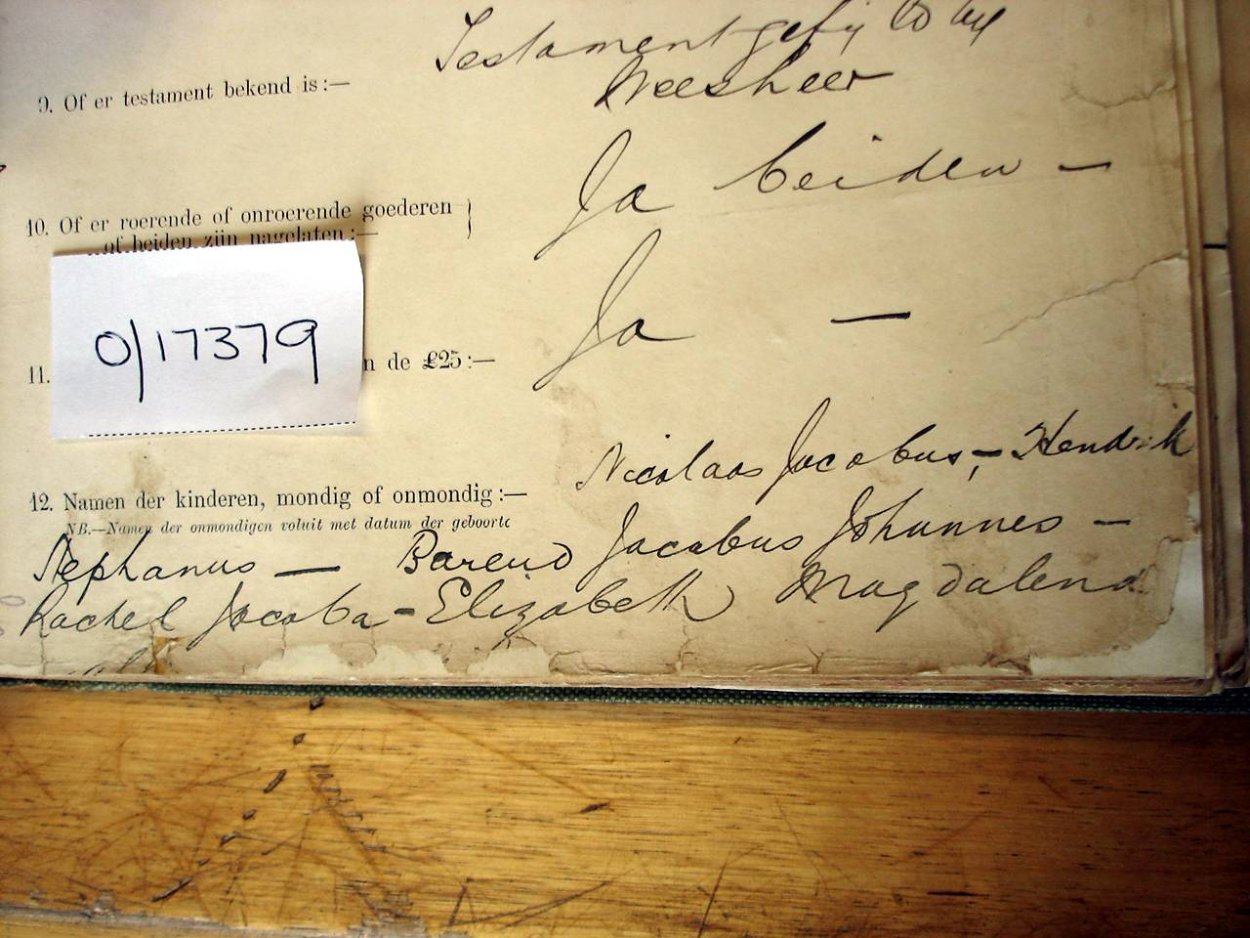 Testament
9. Of er testament bekend is :— Weesheer
10. Of er roerende of onroerende goederen
of beiden zijn nagelaten :— Ja beiden —
O/17379
11. n de £25 :— Ja —
12. Namen der kinderen, mondig of onmondig :— Nicolaas Jacobus, — Hendrik
NB.—Namen der onmondigen voluit met datum der geboorte
Stephanus — Barend Jacobus Johannes —
Rachel Jacoba - Elizabeth Magdalena